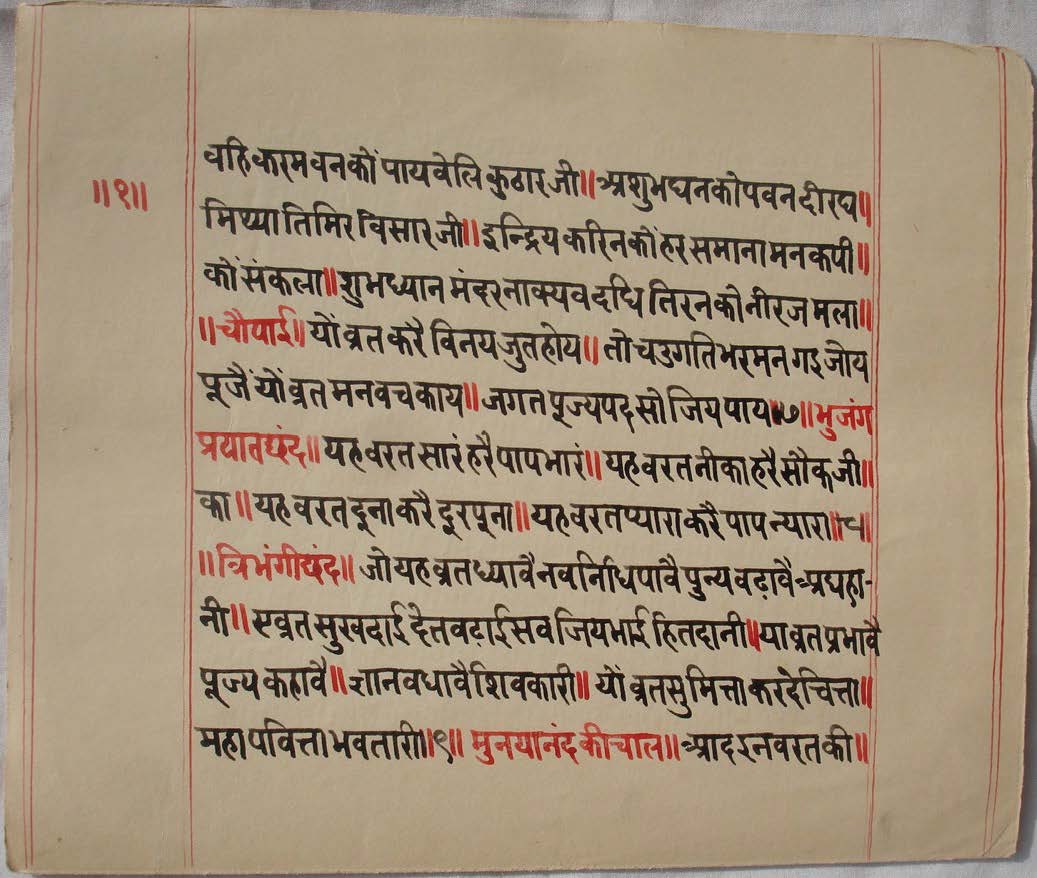 ॥१॥
वहि करम वन कों पाय वेलि कुठार जी॥ अशुभघन को पवन दीरघ॥
मिथ्या तिमिर विसार जी॥ इन्द्रिय करिन कों हर समाना मन कपी॥
कों संकला॥ शुभध्यान मंदर नाक्यव दधि तिरन को नीरज मला॥
॥चौपाई॥ यों व्रत करै विनय जुत होय॥ तो चउगति भरमन गइ जोय
पूजैं यों व्रत मन वच काय॥ जगत पूज्य पद सो जिय पाय ॥७॥ भुजंग
प्रयात छंद॥ यह वरत सारं हरै पाप भारं॥ यह वरत नीका हरै सौक जी॥
का॥ यह वरत दूना करै दुर पूना॥ यह वरत प्यारा करै पाप न्यारा॥८॥
॥त्रिभंगी छंद॥ जो यह व्रत ध्यावै नव निधि पावै पुन्य वढ़ावै अघ हा-
नी॥ ए व्रत सुखदाई दैत वढ़ाई सव जिय भाई हितदानी॥ या व्रत प्रभावै
पूज्य कहावै॥ ज्ञान वधावै शिवकारी॥ यों व्रत सुमित्ता कर दे चित्ता॥
महा पवित्ता भवतारी॥९॥ मुनयानंद की चाल॥ आदर न वरत की॥